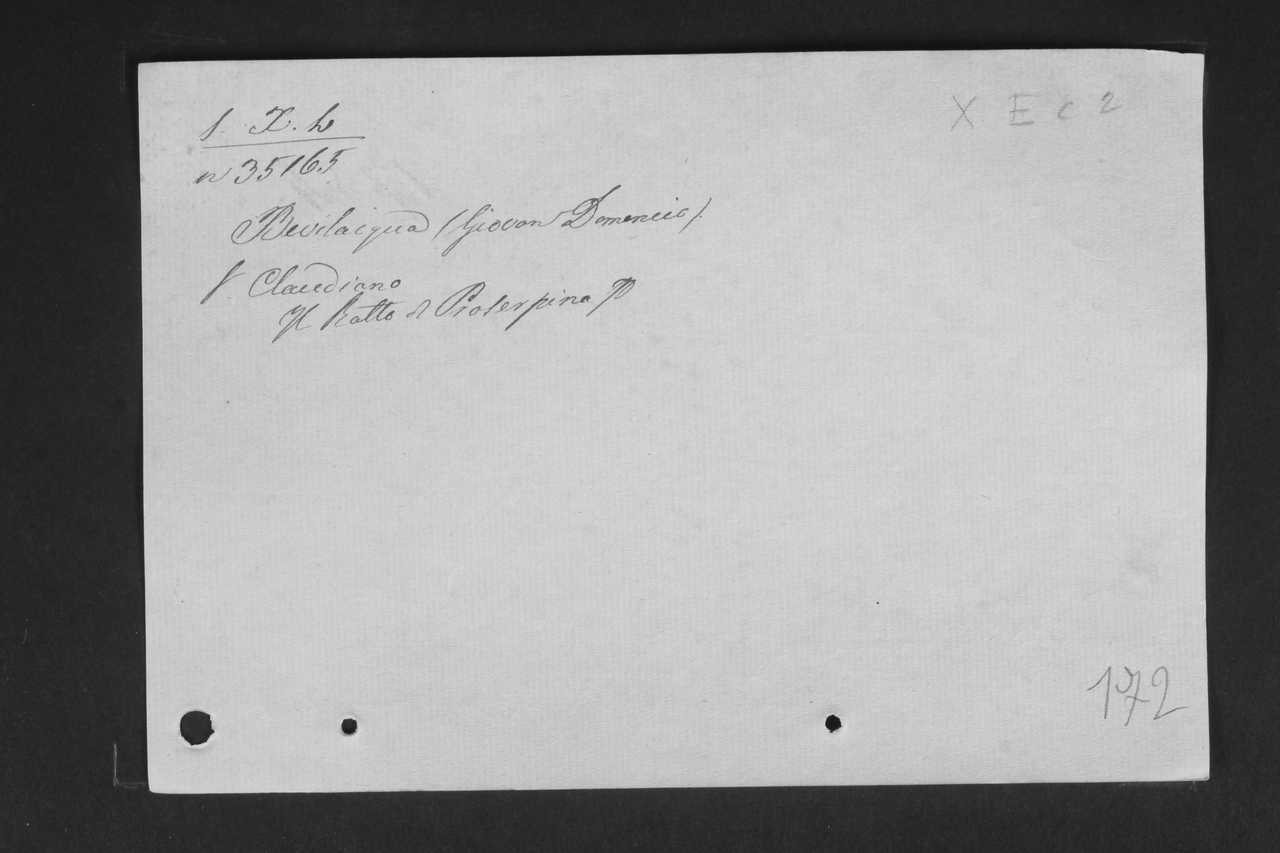 1. X. L
X E c 2
n 35165
Bevilacqua (Giovan Domenico).
V Claudiano
Il Ratto di Proserpina
172